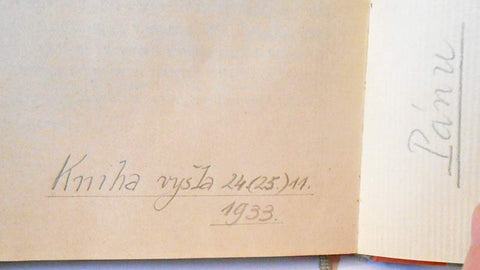 Kniha vyšla 24.(25.)11.
1933.
Pánu